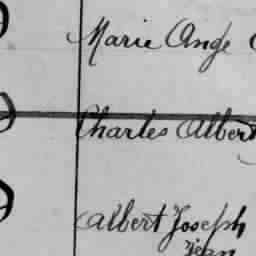 Marie Ange
Charles Albert
Albert Joseph
Jean